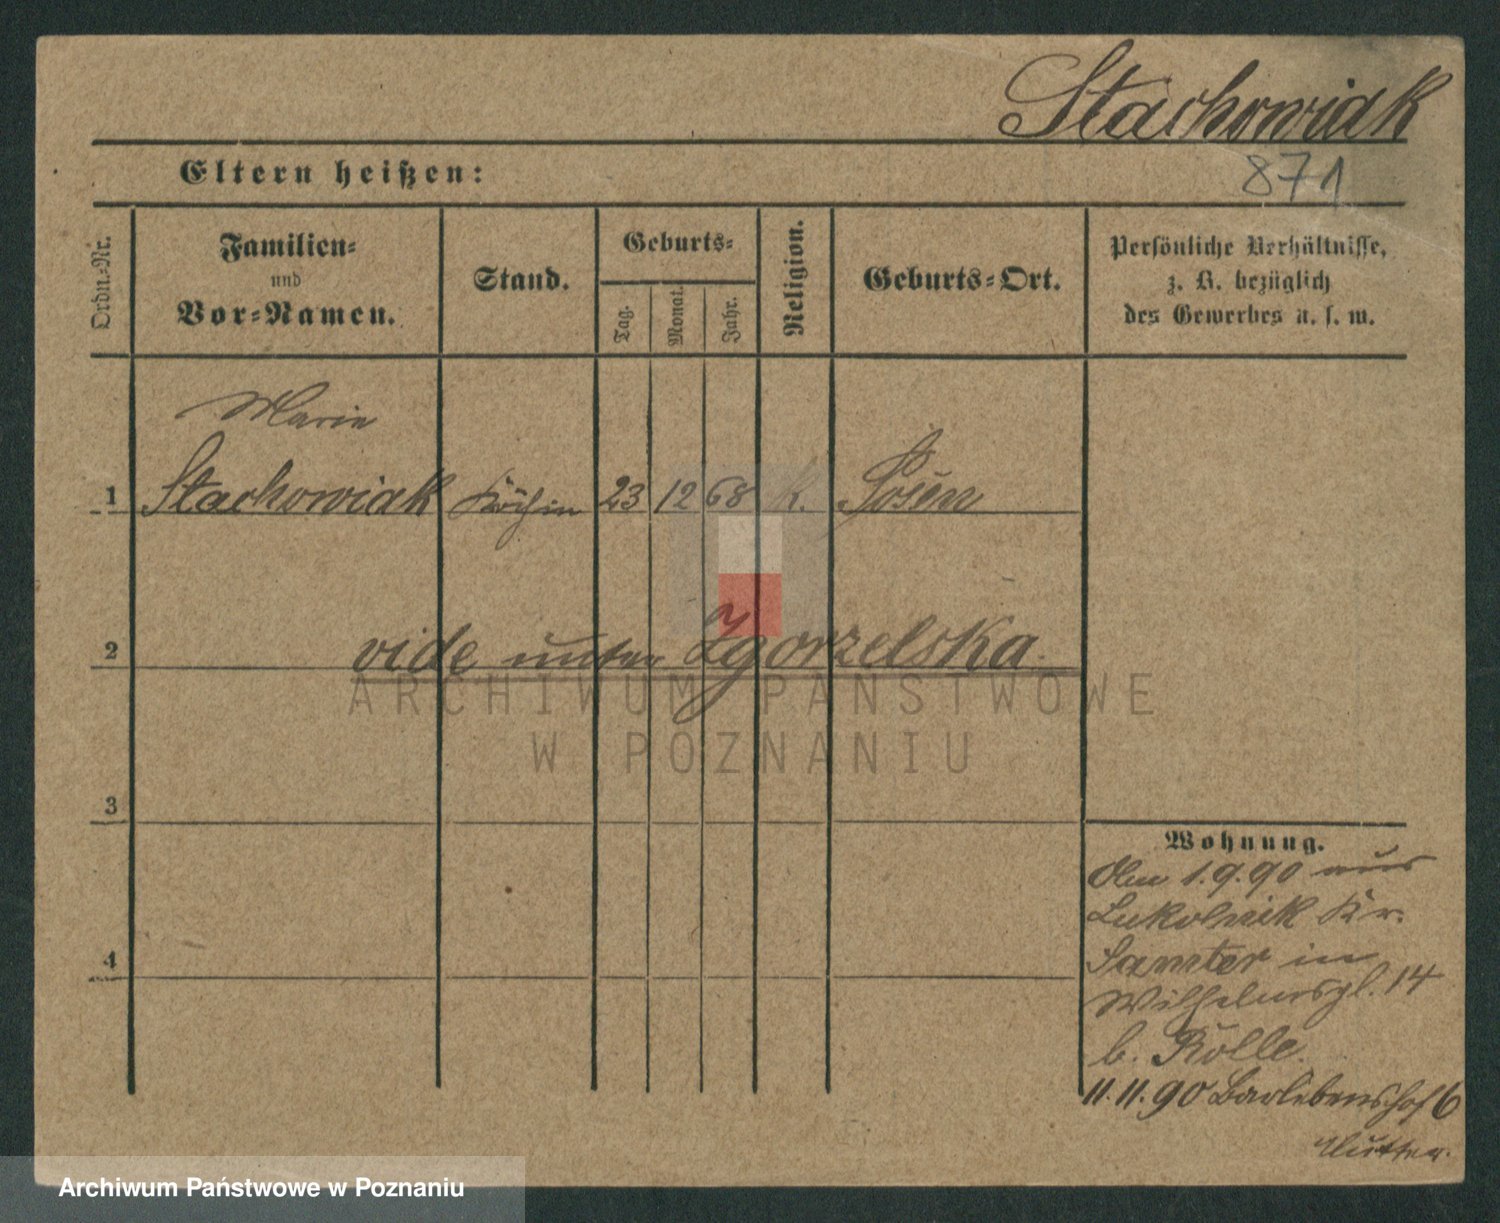 Stachowiak
871
Eltern heißen:
Ordn.-Nr.
Familien-
und
Vor-Namen.
Stand.
Geburts-
Tag.
Monat.
Jahr.
Religion.
Geburts-Ort.
Persönliche Verhältnisse,
z. B. bezüglich
des Gewerbes u. s. w.
Marie
1 Stachowiak Köchin 23 12 68 k. Posen
2 vide unter Zgorzelska.
3
4
Wohnung.
1.9.90 aus
Lukolnik Kr.
Samter in
Wilhelmspl. 14
b. Rölle.
11.11.90 Barlebenshof 6
Mutter.
ARCHIWUM PAŃSTWOWE
W POZNANIU
Archiwum Państwowe w Poznaniu